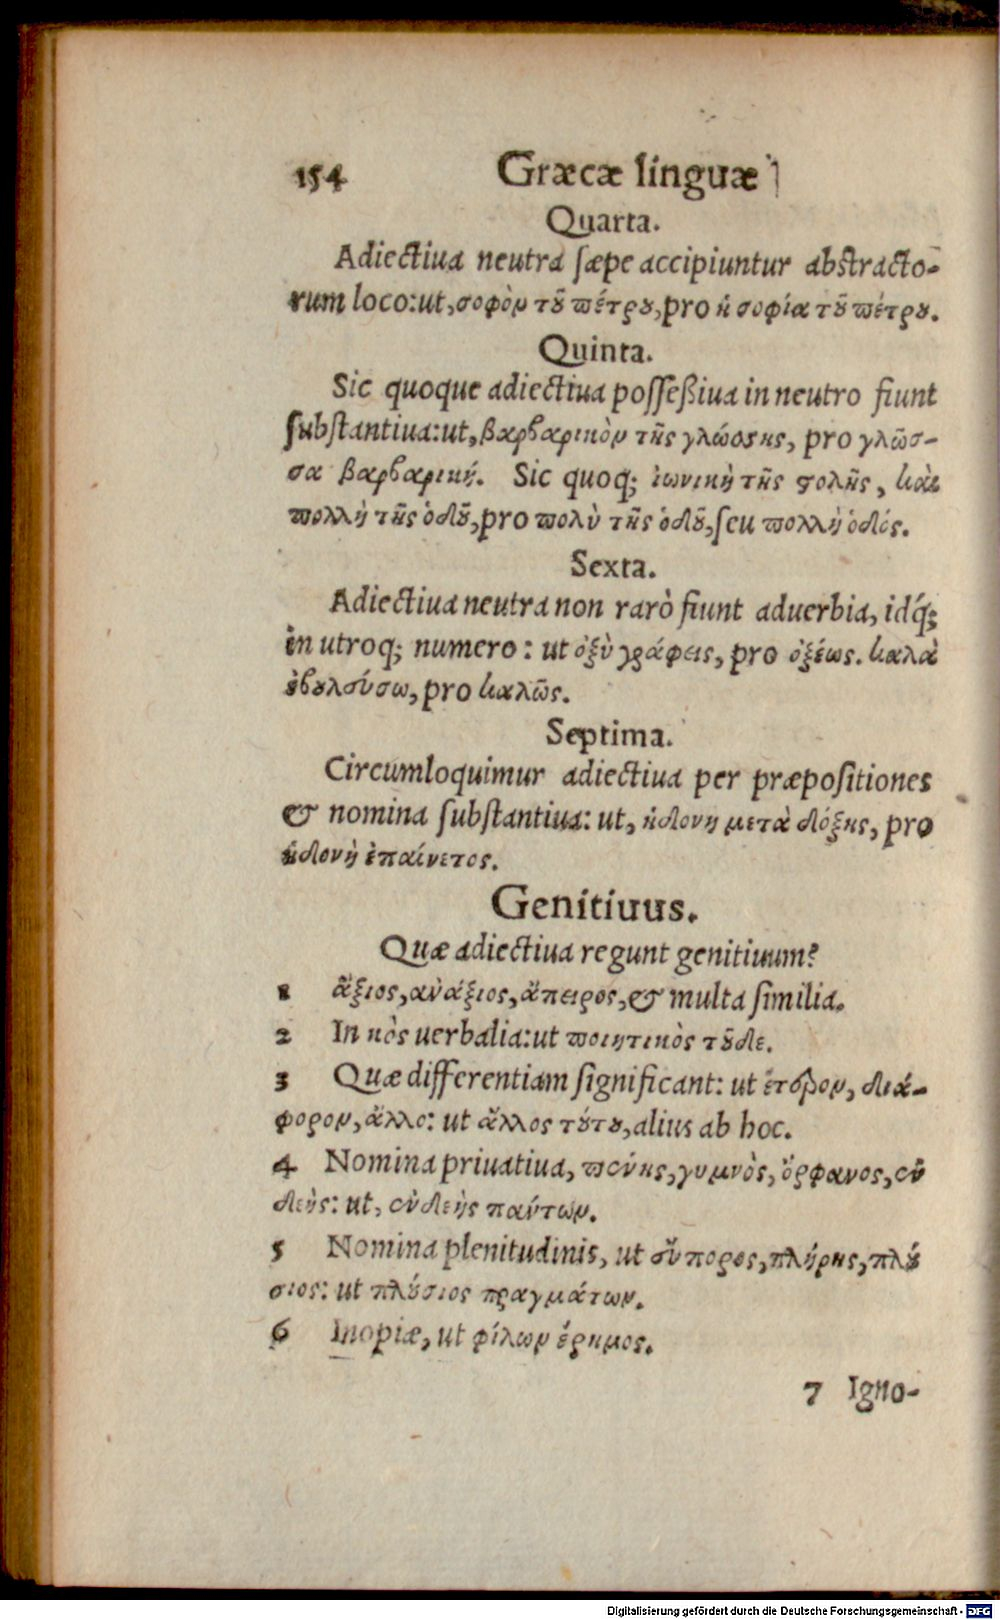 154 Græcæ linguæ
Quarta.
Adiectiua neutra sæpe accipiuntur abstracto-
rum loco: ut, σοφὸν τοῦ πέτρου, pro ἡ σοφία τοῦ πέτρου.
Quinta.
Sic quoque adiectiua possessiua in neutro fiunt
substantiua: ut, βαρβαρικὸν τῆς γλώσσης, pro γλῶσ-
σα βαρβαρική. Sic quoq; ἰωνικὴ τῆς στολῆς, καὶ
πολλὴ τῆς ὁδοῦ, pro πολὺ τῆς ὁδοῦ, seu πολλὴ ὁδός.
Sexta.
Adiectiua neutra non rarò fiunt aduerbia, idq́;
in utroq; numero: ut ὀξὺ γράφεις, pro ὀξέως. καλὰ
ἐβουλεύσω, pro καλῶς.
Septima.
Circumloquimur adiectiua per præpositiones
& nomina substantiua: ut, ἡδονη μετὰ δόξης, pro
ἡδονὴ ἐπαίνετος.
Genitiuus.
Quæ adiectiua regunt genitiuum?
1 ἄξιος, ἀνάξιος, ἄπειρος, & multa similia.
2 In κὸς uerbalia: ut ποιητικὸς τοῦδε.
3 Quæ differentiam significant: ut ἕτερον, διά-
φορον, ἄλλο: ut ἄλλος τούτου, alius ab hoc.
4 Nomina priuatiua, πένης, γυμνὸς, ὄρφανος, ἐν
δεὴς: ut, ἐνδεὴς πάντων.
5 Nomina plenitudinis, ut εὔπορος, πλήρης, πλού
σιος: ut πλούσιος πραγμάτων.
6 Inopiæ, ut φίλων ἔρημος.
7 Igno-
Digitalisierung gefördert durch die Deutsche Forschungsgemeinschaft - DFG